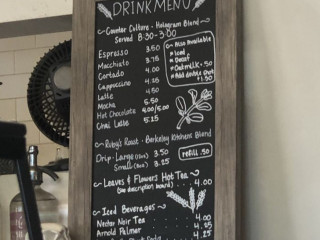 DRINK MENU
Counter Culture - Hologram Blend
Served 8:30-3:00
Espresso 3.50
Macchiato 3.75
Cortado 4.00
Cappuccino 4.25
Latte 4.50
Mocha 5.50
Hot Chocolate 4.00/5.00
Chai Latte 5.25
Also Available
* Iced
* Decaf
* Oatmilk + .50
* Add double shot
+ 1.50
Ruby's Roast - Berkeley Kitchens Blend
Drip - Large 3.50
Small 3.25
refill .50
Leaves & Flowers Hot Tea
(See description board) 4.00
Iced Beverages
Nectar Noir Tea 4.00
Arnold Palmer 4.25
4.25